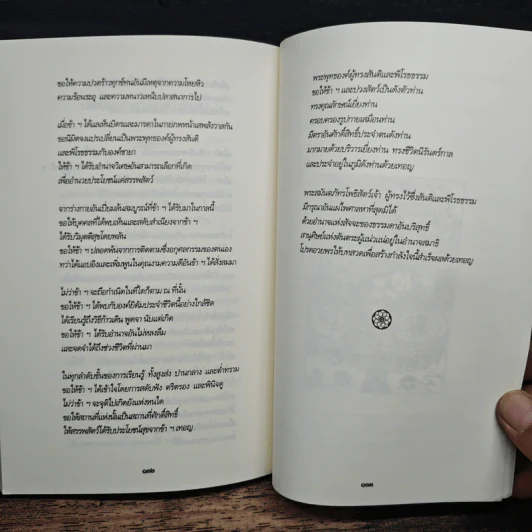 ขอให้ความปวดร้าวทุกข์ทนอันมีเหตุจากความโหยหิว
ความร้อนระอุ และความหนาวเหน็บปลาสนาการไป
เมื่อข้า ฯ ได้แลเห็นบิดรและมารดาในภายภพหน้าเสพสังวาสกัน
ขอนิมิตจงแปรเปลี่ยนเป็นพระพุทธองค์ผู้ทรงสันติ
และพิโรธธรรมกับองค์ชายา
ให้ข้า ฯ ได้รับอำนาจวิเศษอันสามารถเลือกที่เกิด
เพื่ออำนวยประโยชน์แด่สรรพสัตว์
จากร่างกายอันเปี่ยมล้นสมบูรณ์ที่ข้า ฯ ได้รับมาในกาลนี้
ขอให้บุคคลที่ได้พบเห็นและสดับสำเนียงจากข้า ฯ
ได้รับวิมุตติสุขโดยพลัน
ขอให้ข้า ฯ ปลอดพ้นจากการติดตามซึ่งอกุศลกรรมของตนเอง
ทว่าได้แอบอิงและเพิ่มพูนในคุณงามความดีอันข้า ฯ ได้สั่งสมมา
ไม่ว่าข้า ฯ จะถือกำเนิดในที่ใดก็ตาม ณ ที่นั้น
ขอให้ข้า ฯ ได้พบกับองค์ยิดัมประจำชีวิตนี้อย่างใกล้ชิด
ได้เรียนรู้ถึงวิธีก้าวเดิน พูดจา นับแต่เกิด
ขอให้ข้า ฯ ได้รับอำนาจอันไม่หลงลืม
และจดจำได้ถึงช่วงชีวิตที่ผ่านมา
ในทุกลำดับชั้นของการเรียนรู้ ทั้งสูงส่ง ปานกลาง และต่ำทราม
ขอให้ข้า ฯ ได้เข้าใจโดยการสดับฟัง ตริตรอง และพินิจดู
ไม่ว่าข้า ฯ จะจุติไปเกิดยังแห่งหนใด
ขอให้สถานที่แห่งนั้นเป็นสถานที่ศักดิ์สิทธิ์
ให้สรรพสัตว์ได้รับประโยชน์สุขจากข้า ฯ เทอญ
พระพุทธองค์ผู้ทรงสันติและพิโรธธรรม
ขอให้ข้า ฯ และปวงสัตว์เป็นดังตัวท่าน
ทรงคุณลักษณ์เยี่ยงท่าน
ครอบครองรูปกายเสมือนท่าน
มีตราอันศักดิ์สิทธิ์ประจำตนดังท่าน
มากมายด้วยบริวารเยี่ยงท่าน ทรงชีวิตนิรันดร์กาล
และประจำอยู่ในภูมิดังท่านด้วยเทอญ
พระสมันตภัทรโพธิสัตว์เจ้า ผู้ทรงไว้ซึ่งสันติและพิโรธธรรม
มีกรุณาอันแผ่ไพศาลหาที่สุดมิได้
ด้วยอำนาจแห่งสัจจะของธรรมดาอันบริสุทธิ์
สานุศิษย์แห่งตันตระผู้แน่วแน่อยู่ในอำนาจสมาธิ
โปรดอวยพรให้บทสวดเพื่อสร้างกำลังใจนี้สำเร็จผลด้วยเทอญ